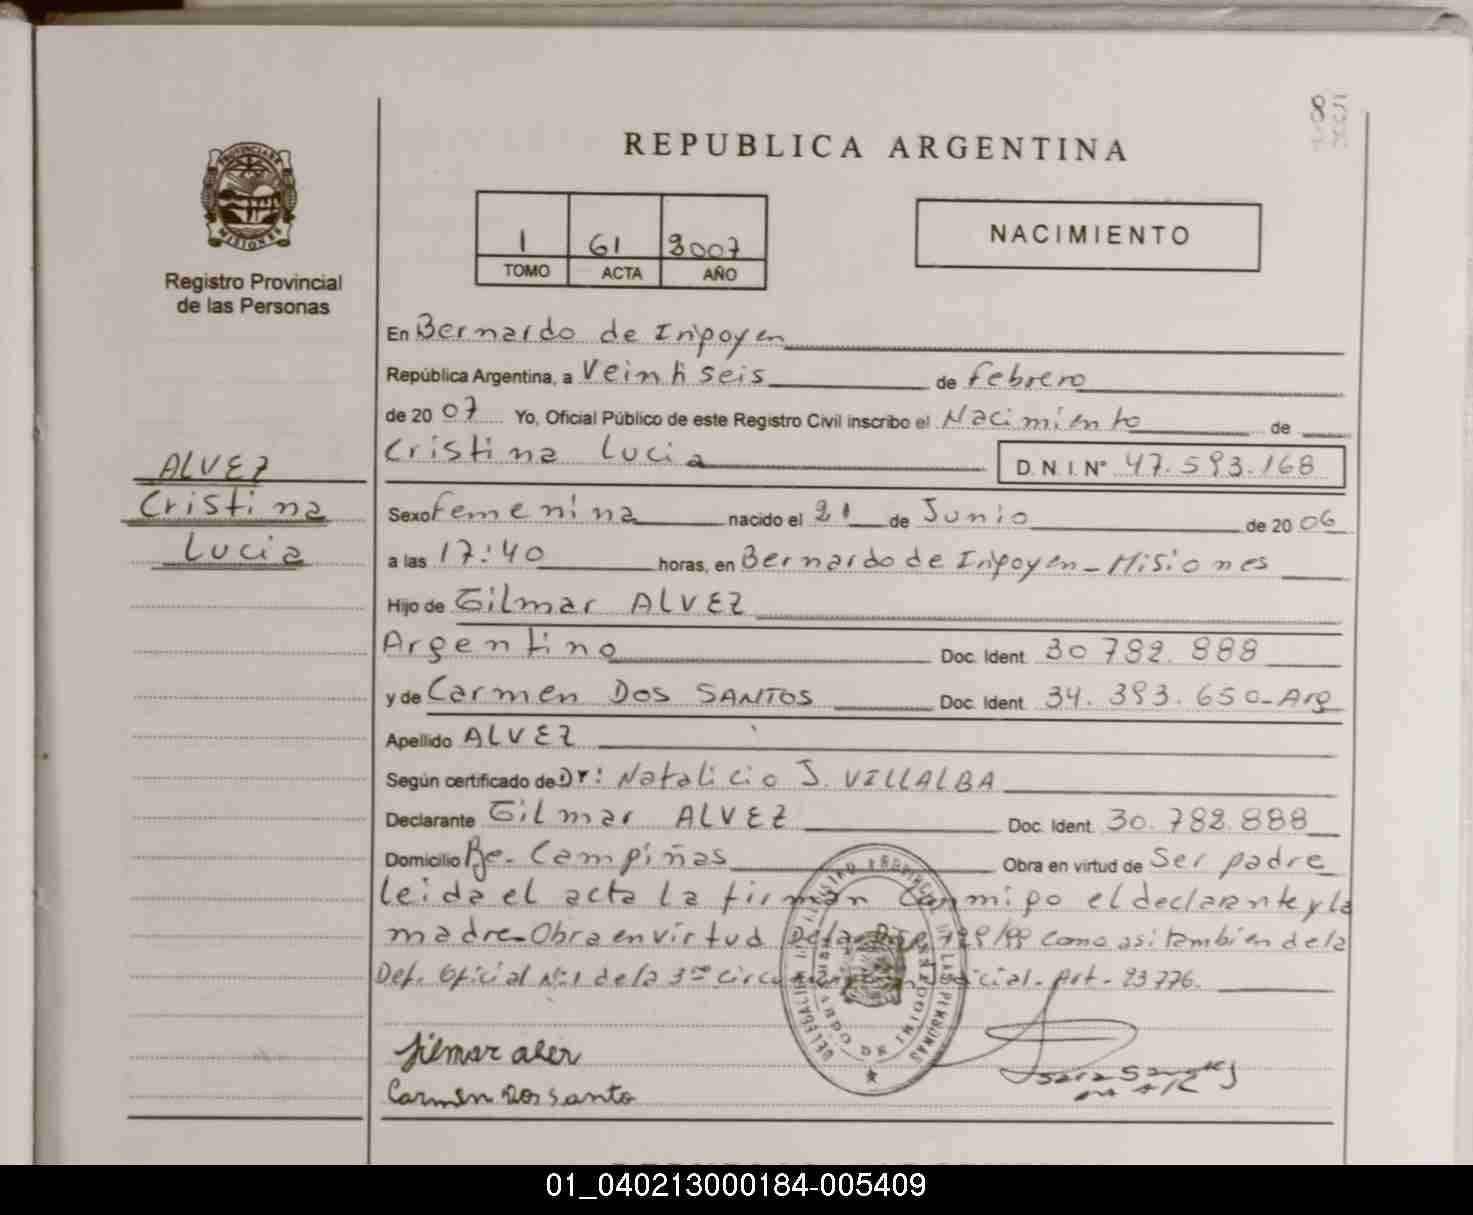 85
REPUBLICA ARGENTINA
PROVINCIA DE
MISIONES
Registro Provincial
de las Personas
1 61 2007
TOMO ACTA AÑO
NACIMIENTO
En Bernardo de Irigoyen
República Argentina, a Veintiseis de febrero
de 20 07 Yo, Oficial Público de este Registro Civil inscribo el Nacimiento de
Cristina Lucia D.N.I. Nº 47.593.168
ALVEZ
Cristina
Lucia
Sexo Femenina nacido el 21 de Junio de 20 06
a las 17:40 horas, en Bernardo de Irigoyen - Misiones
Hijo de Gilmar ALVEZ
Argentino Doc. Ident. 30 782. 888
y de Carmen DOS SANTOS Doc. Ident. 34. 393. 650 - Arg
Apellido ALVEZ
Según certificado de Dr: Natalicio J. VILLALBA
Declarante Gilmar ALVEZ Doc. Ident. 30. 782. 888
Domicilio Campiñas Obra en virtud de Ser padre
leida el acta la firman conmigo el declarante y la
madre - Obra en virtud De la 729/99 como asi tambien de la
Def. Oficial Nº 1 de la 3ra Art - 23776.
DELEGACION REGISTRO PROVINCIAL DE LAS PERSONAS
BERNARDO DE IRIGOYEN
Carmen Dos santo
01_040213000184-005409